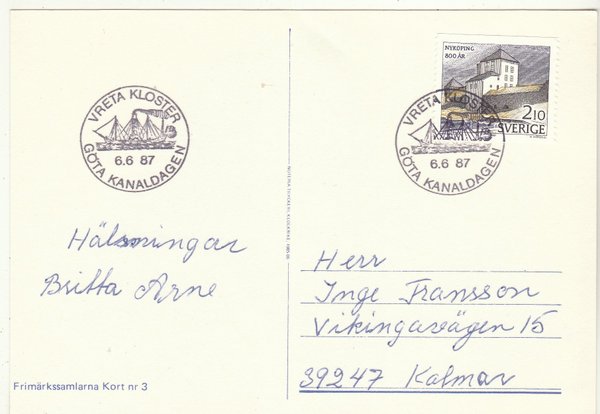 VRETA KLOSTER
6.6 87
GÖTA KANALDAGEN
NYKÖPING
800 ÅR
2,10
SVERIGE
VRETA KLOSTER
6.6 87
GÖTA KANALDAGEN
Hälsningar
Britta Arne
Herr
Inge Fransson
Vikingavägen 15
39247 Kalmar
Frimärkssamlarna Kort nr 3